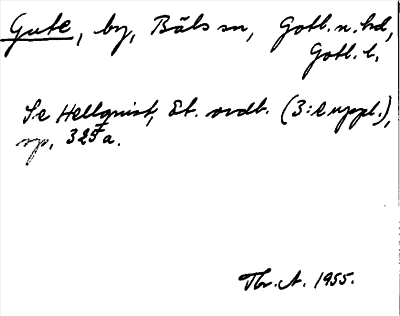 Gute, by, Bäls sn, Gotl. n. hd,
Gotl. l.
Se Hellquist, Et. ordb. (3:e uppl.),
sp. 325 a.
Thr. A. 1955.